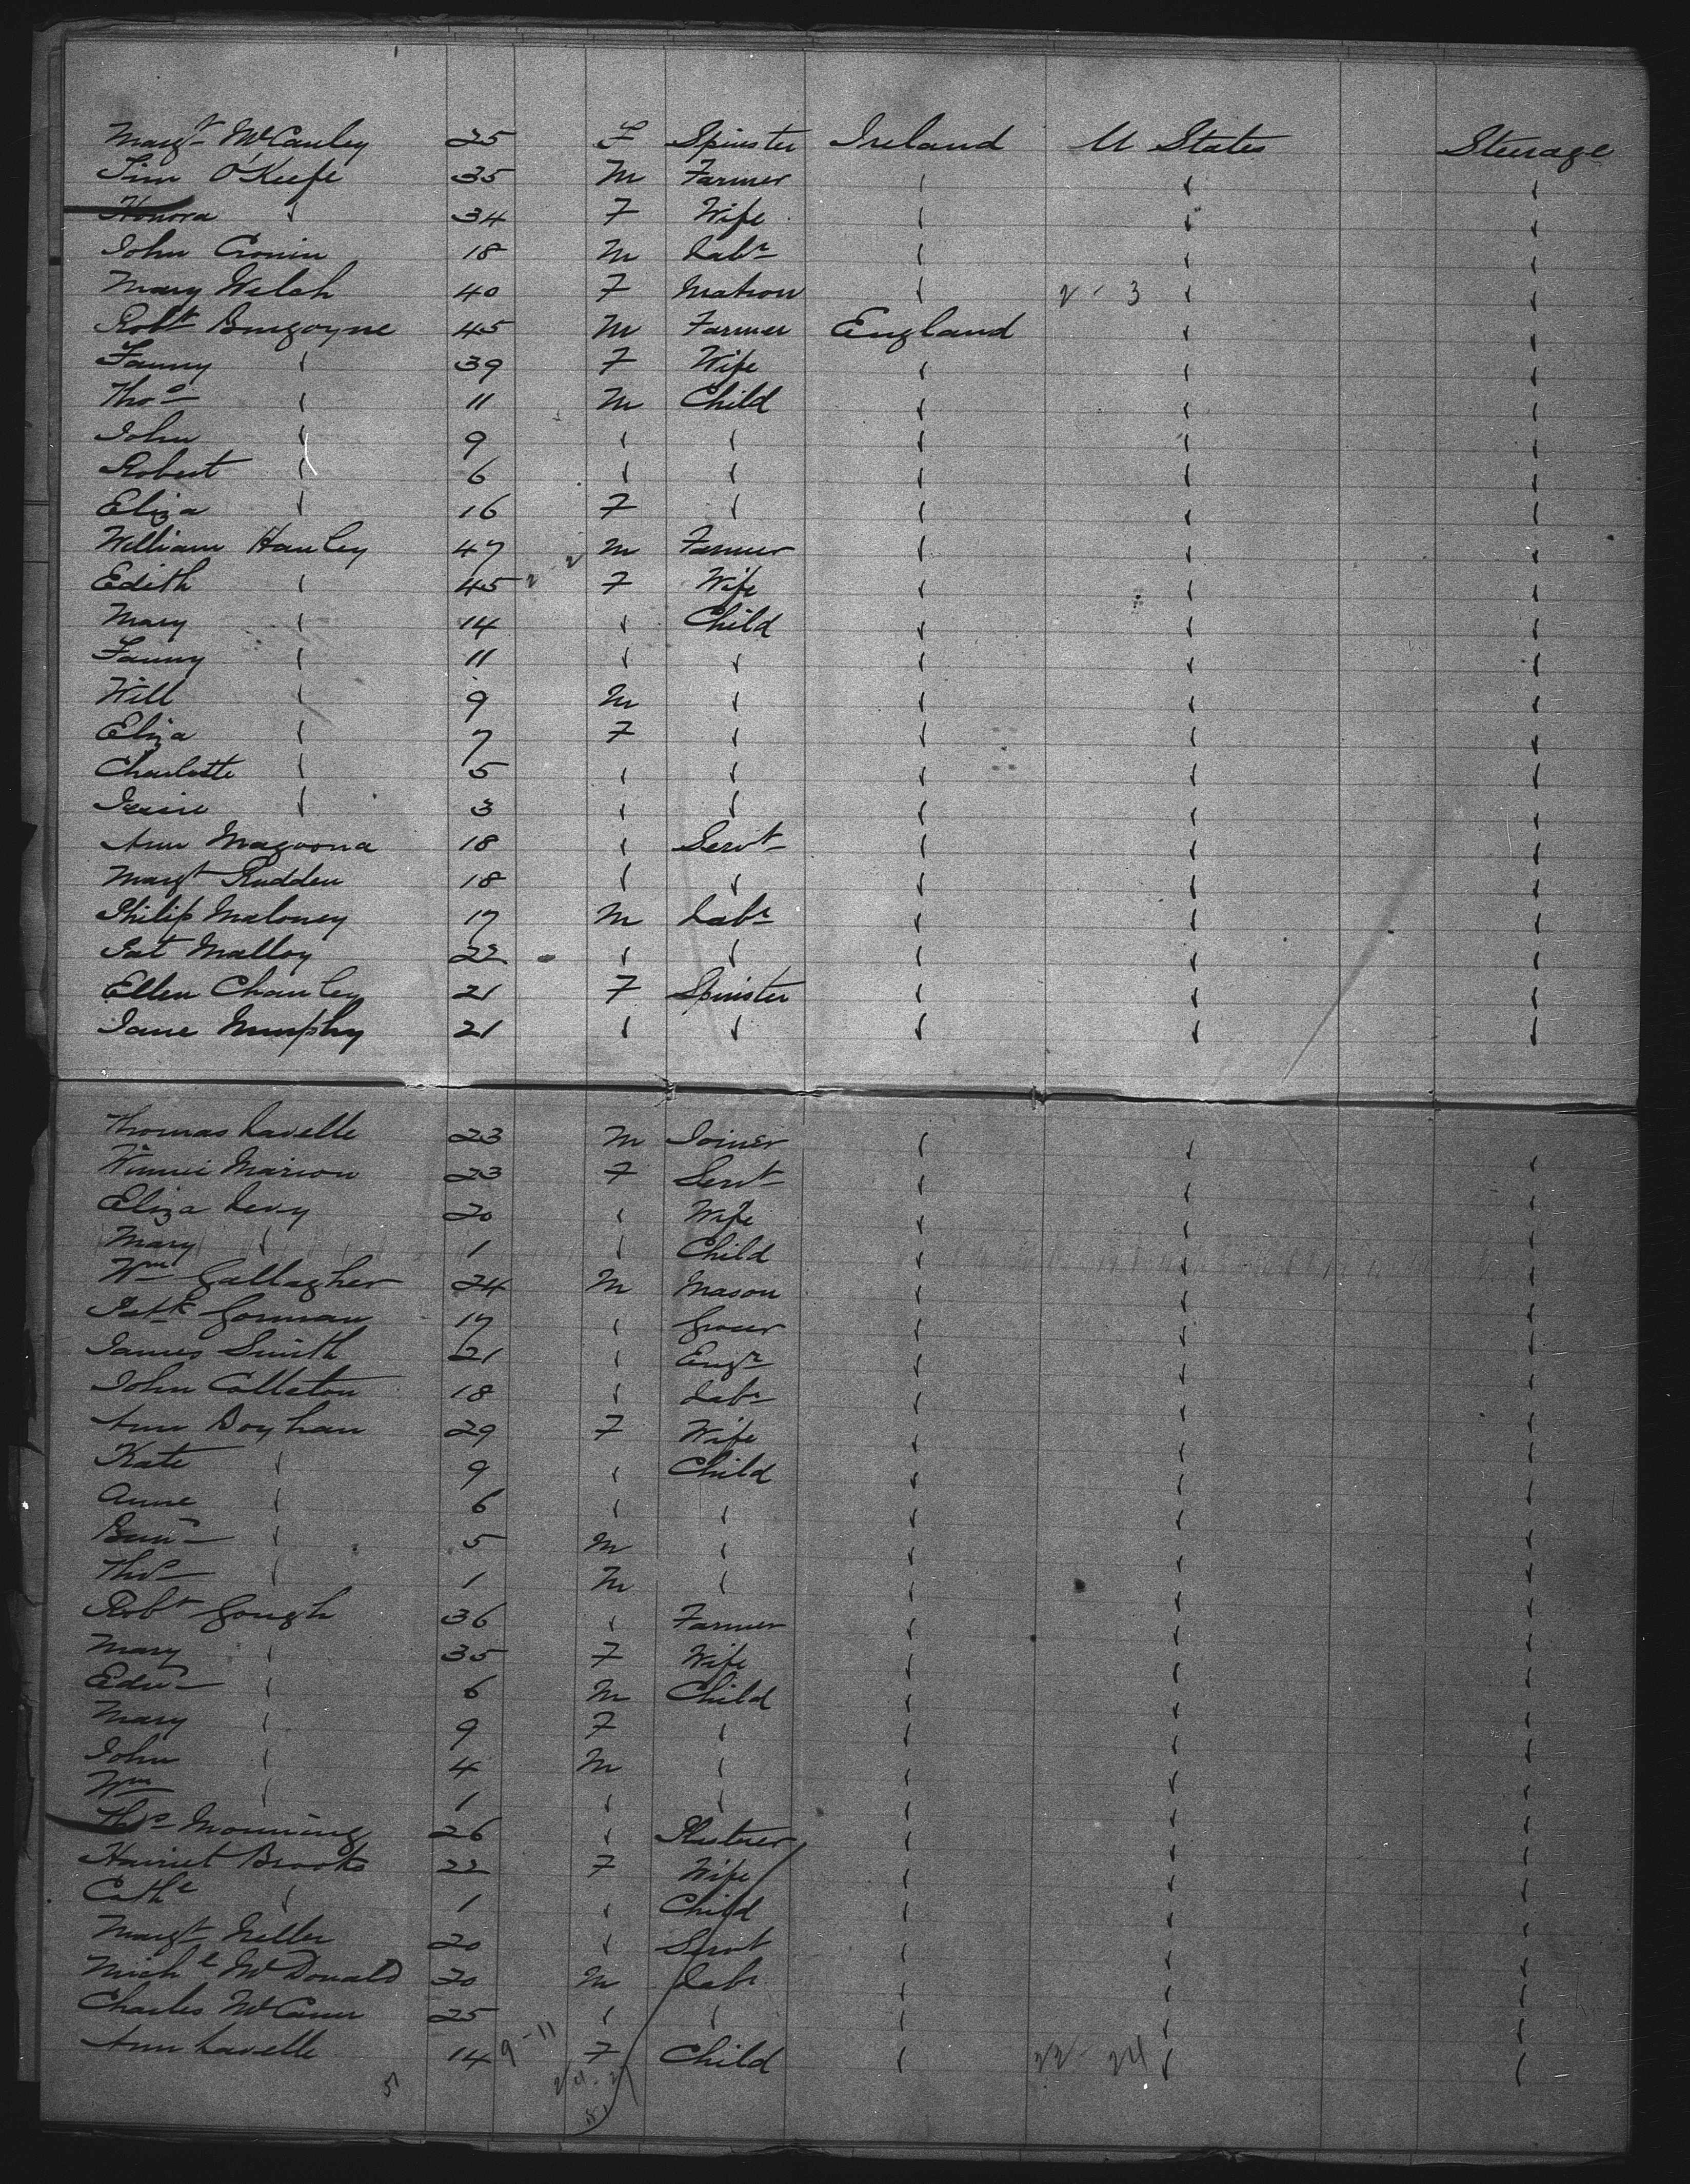 Margt McCauley 25 F Spinster Ireland U States Steerage
Tim O'Keefe 35 M Farmer " " "
Honora " 34 F Wife " " "
John Cronin 18 M Labr " " "
Mary Welch 40 F Matron " 2 - 3 " "
Robt Burgoyne 45 M Farmer England " "
Fanny " 39 F Wife " " "
Thos " 11 M Child " " "
John " 9 " " " " "
Robert " 6 " " " " "
Eliza " 16 F " " " "
William Hanley 47 M Farmer " " "
Edith " 45 F Wife " " "
Mary " 14 " Child " " "
Fanny " 11 " " " " "
Will " 9 M " " " "
Eliza " 7 F " " " "
Charlotte " 5 " " " " "
" 3 " " " " "
Ann Magoona 18 " Servt " " "
Margt Rudden 18 " " " " "
Philip Maloney 17 M Labr " " "
Pat Malloy 22 " " " " "
Ellen Chanley 21 F Spinster " " "
Jane Murphy 21 " " " " "
Thomas Lavelle 23 M Joiner " " "
Winnie Marion 23 F Servt " " "
Eliza Levy 20 " Wife " " "
Mary " 1 " Child " " "
Wm Gallagher 24 M Mason " " "
Patk Gorman 17 " Grocer " " "
James Smith 21 " Engr " " "
John Colleton 18 " Labr " " "
Ann Boyhan 29 F Wife " " "
Kate " 9 " Child " " "
Anne " 6 " " " " "
" 5 M " " " "
Thos " 1 M " " " "
Robt Gough 36 " Farmer " " "
Mary " 35 F Wife " " "
Edw " 6 M Child " " "
Mary " 9 F " " " "
John " 4 M " " " "
Wm " 1 " " " " "
Thos Mourning 26 " " " "
Harriet Brooks 22 F Wife " " "
Cathe " 1 " Child " " "
Margt Keller 20 " Servt " " "
Michl McDonald 20 M Labr " " "
Charles McCann 25 " " " " "
Ann Lavelle 14 9-11 F Child " 22 - 24 " "
5